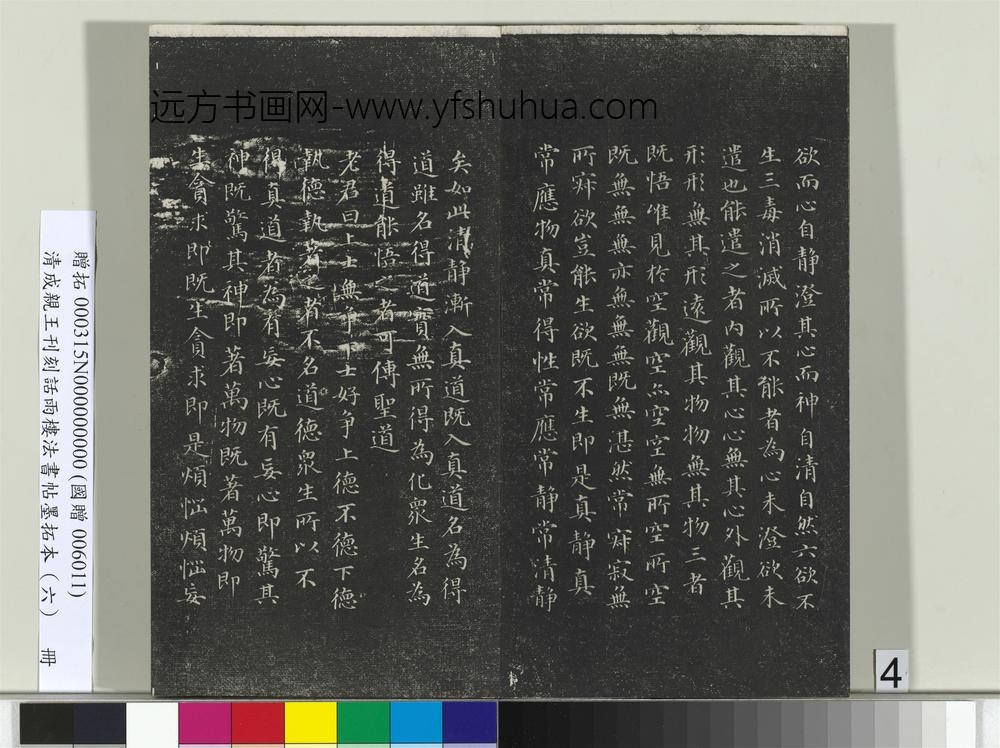 远方书画网-www.yfshuhua.com
欲而心自静澄其心而神自清自然六欲不
生三毒消滅所以不能者為心未澄欲未
遣也能遣之者内觀其心心無其心外觀其
形形無其形遠觀其物物無其物三者
既悟唯見於空觀空亦空空無所空所空
既無無無亦無無無既無湛然常寂寂無
所寂欲豈能生欲既不生即是真静真
常應物真常得性常應常静常清静
矣如此清静漸入真道既入真道名為得
道雖名得道實無所得為化衆生名為
得道能悟之者可傳聖道
老君曰上士無争下士好争上德不德下德
執德執著之者不名道德衆生所以不
得真道者為有妄心既有妄心即驚其
神既驚其神即著萬物既著萬物即
生貪求即既生貪求即是煩惱煩惱妄
贈拓 000315N000000000 (國贈 006011)
清成親王刊刻話雨樓法書帖墨拓本 (六) 冊
4